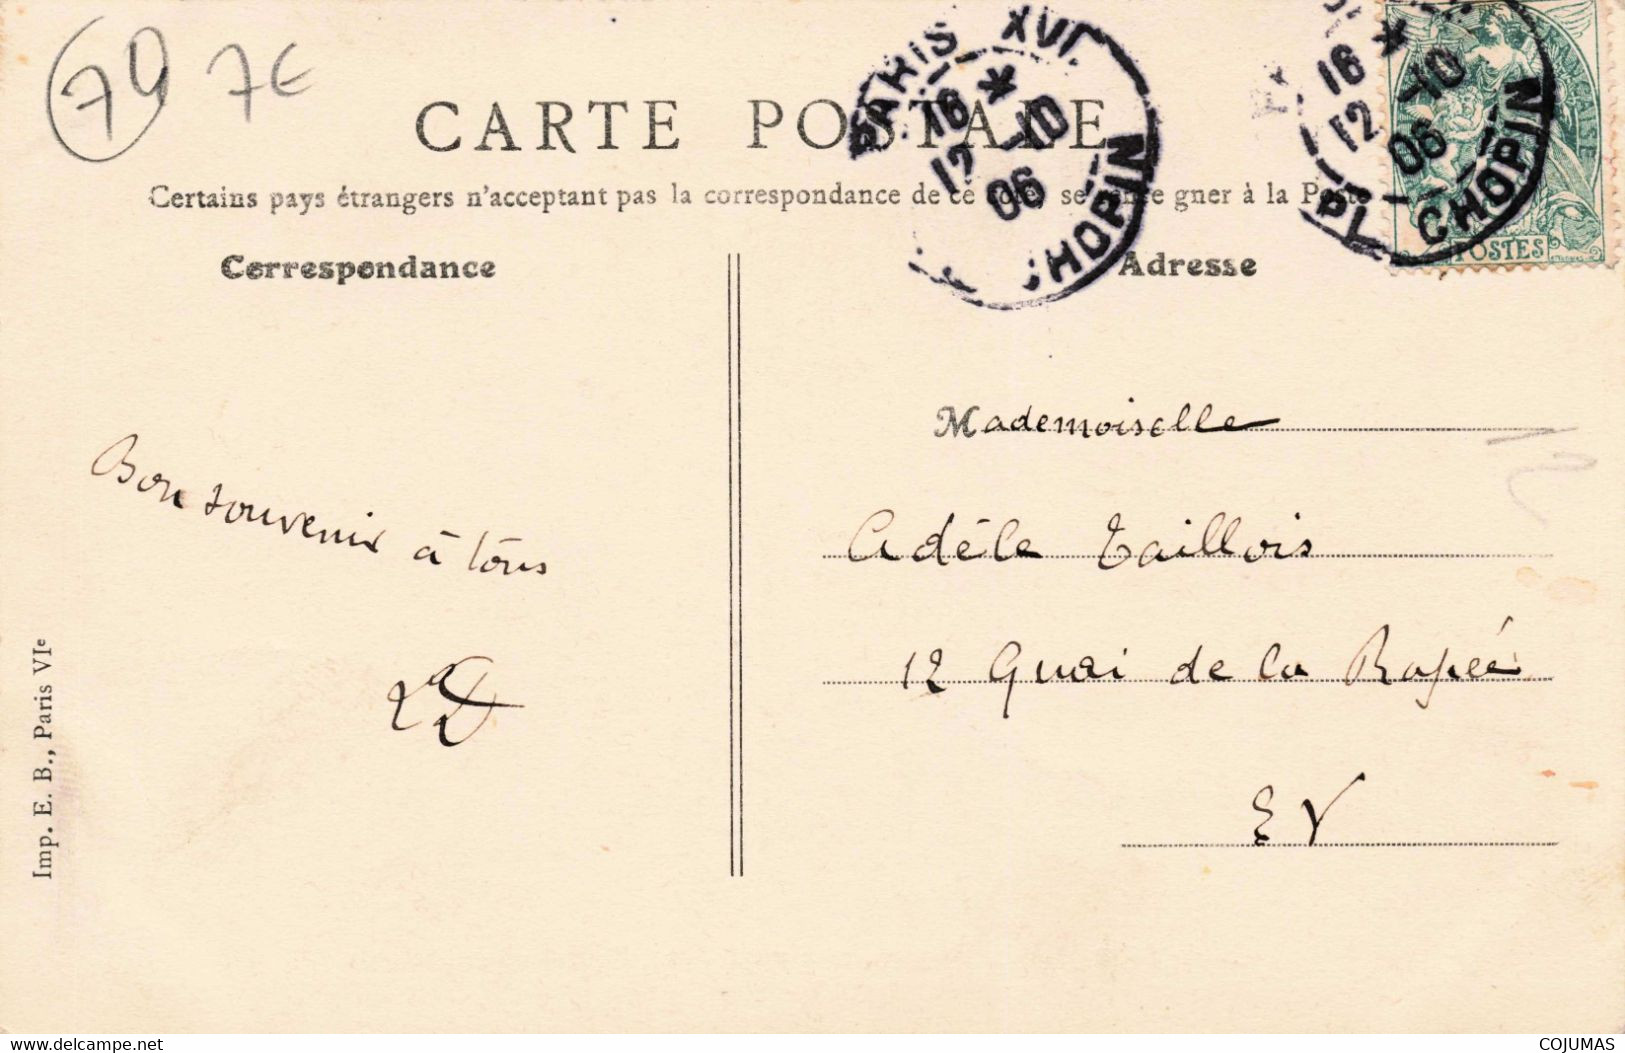 79 7€
CARTE POSTALE
Certains pays étrangers n'acceptant pas la correspondance de ce côté, se gner à la Poste
Correspondance
Adresse
PARIS XVI
16 *
12 -10
06
CHOPIN
16 *
12 -10
06
CHOPIN
POSTES
Bon souvenir à tous
Mademoiselle
Adèle Taillois
12 Quai de la Rapée
EV
Imp. E. B., Paris VIe
COJUMAS